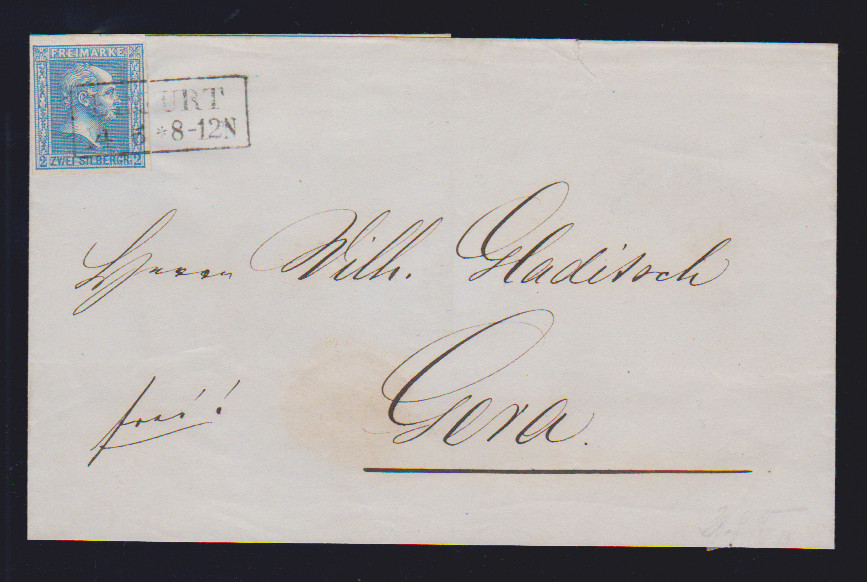 FREIMARKE
2 ZWEI SILBERGR. 2
URT
4 5 * 8-12N
Herrn Wilh. Gladitsch
frei!
Gera.